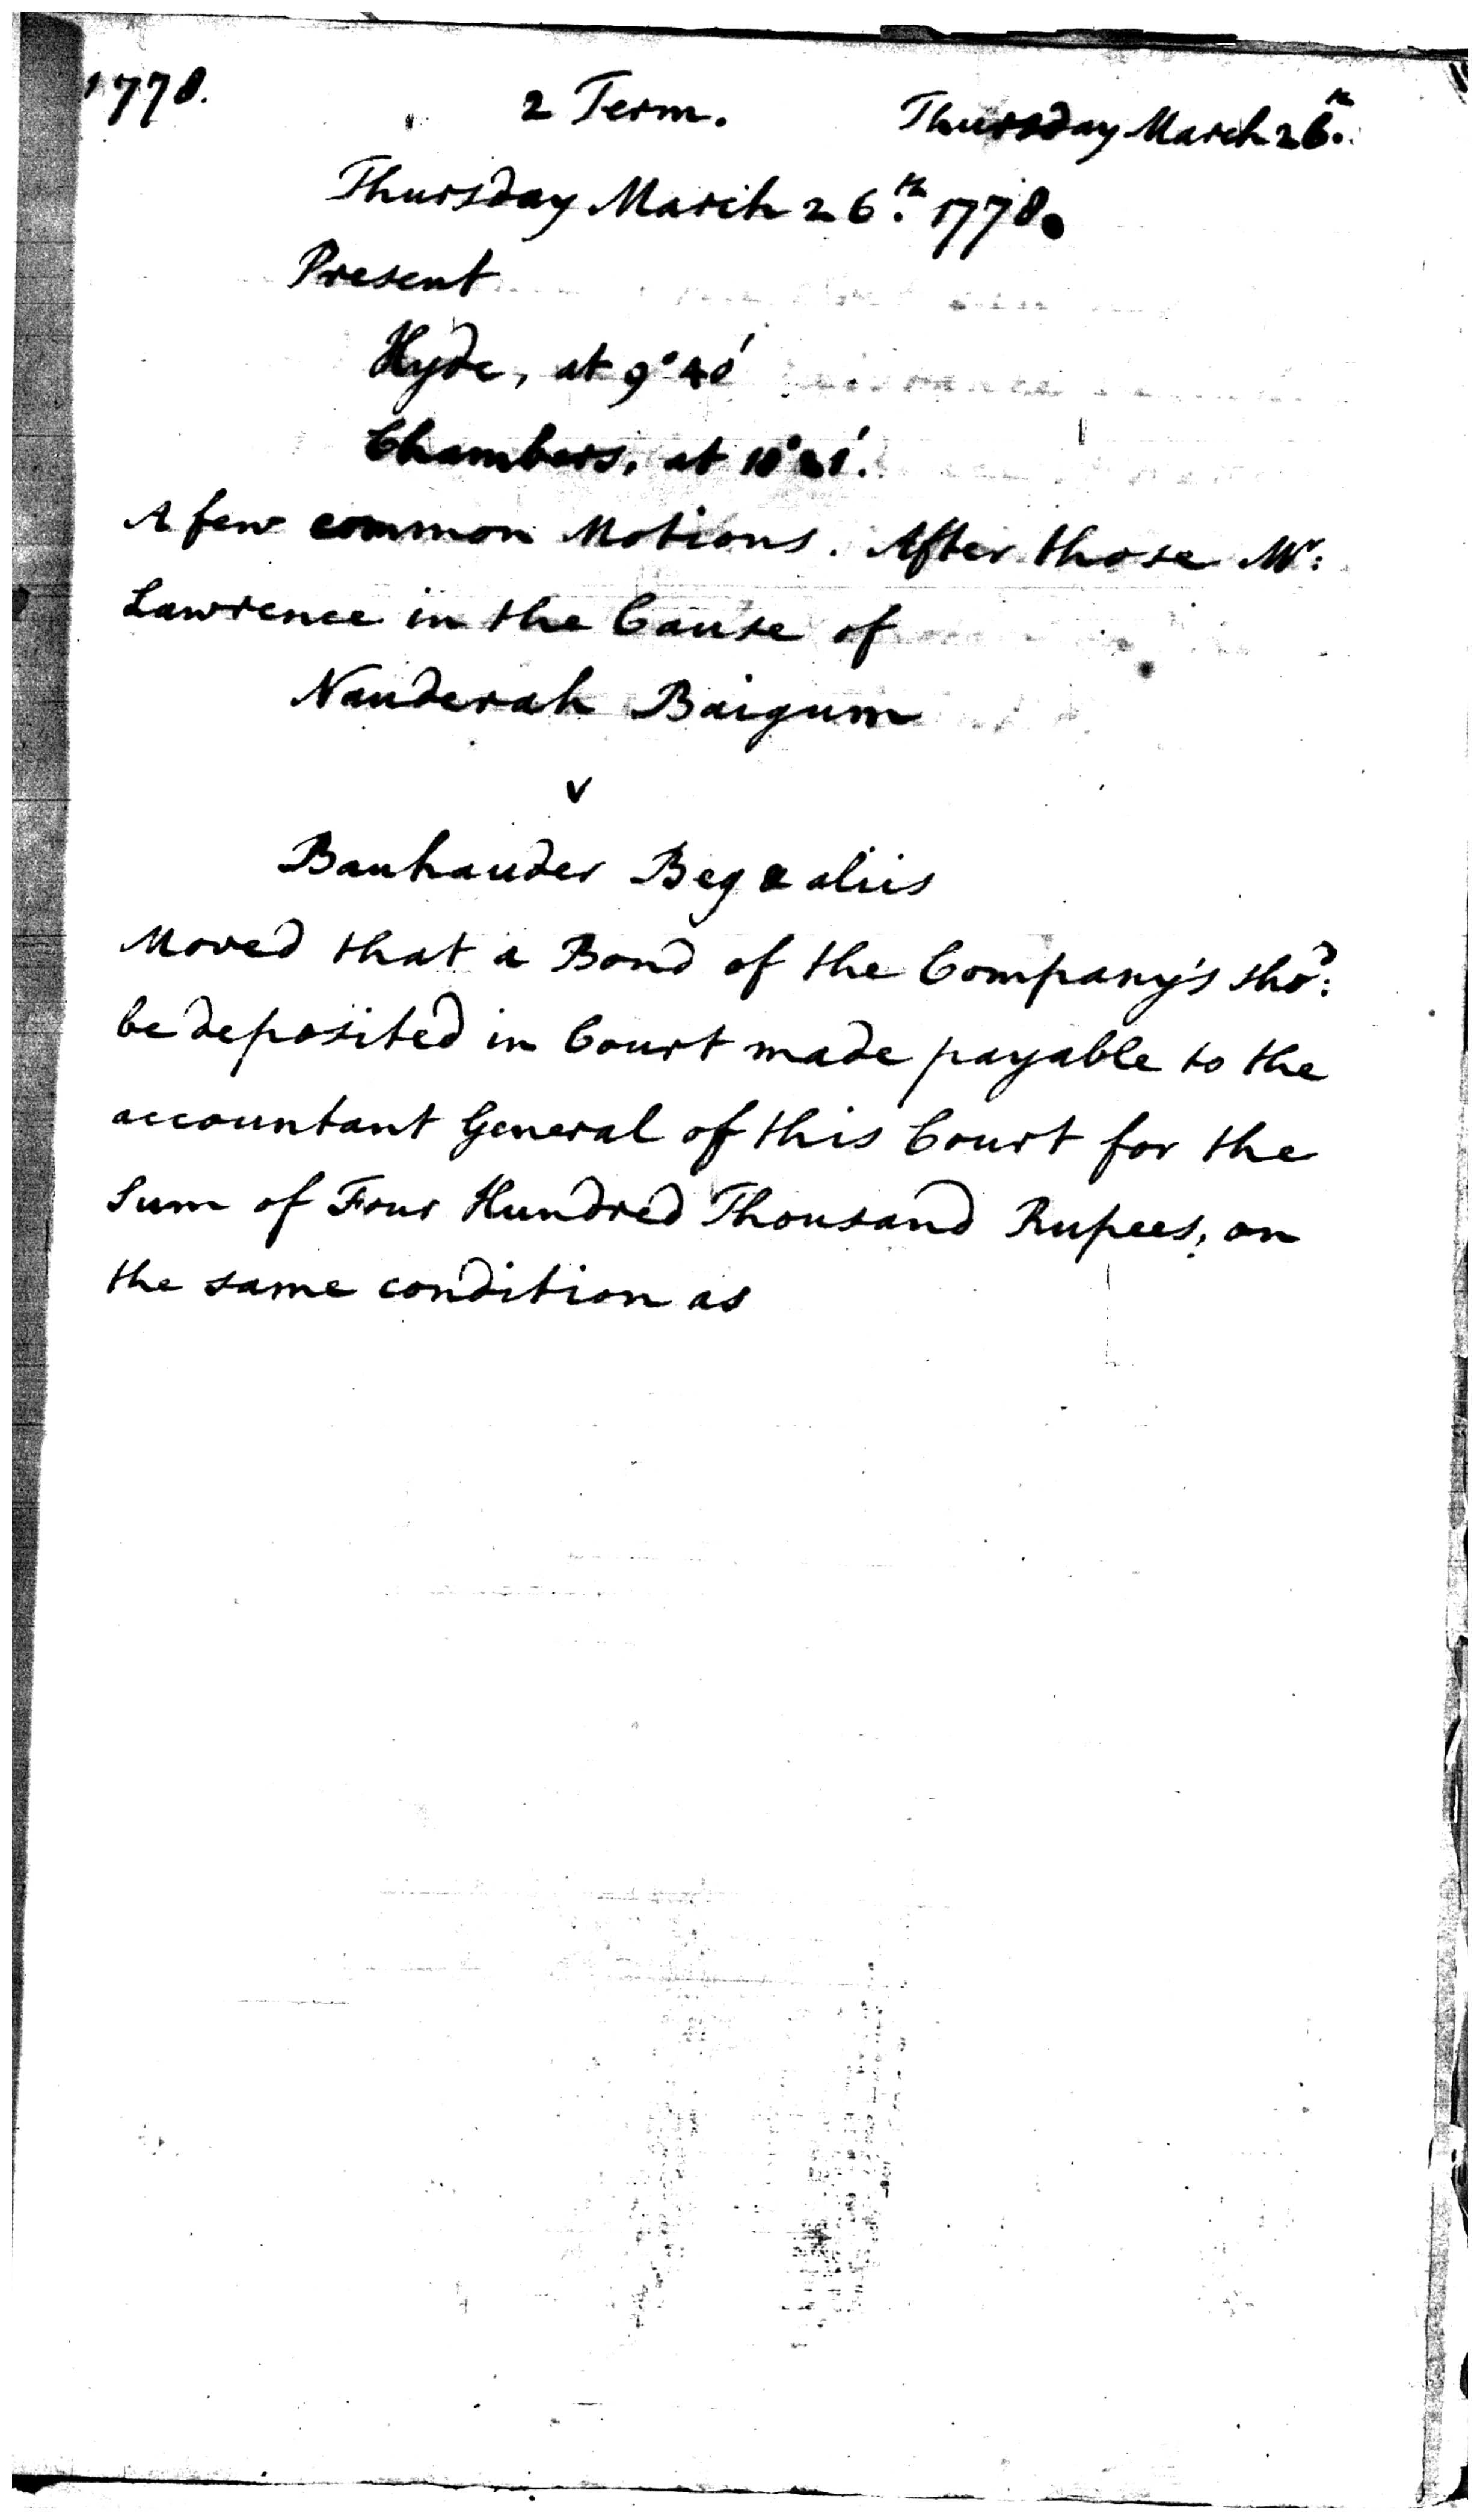 1778. 2 Term. Thursday March 26th.
Thursday March 26th. 1778.
Present
Hyde, at 9° 40'
Chambers, at 10° 21'.
A few common Motions. After those Mr:
Lawrence in the Cause of
Nauderah Baigum
v
Bauhauder Beg & aliis
Moved that a Bond of the Company's shod:
be deposited in Court made payable to the
accountant General of this Court for the
Sum of Four Hundred Thousand Rupees, on
the same condition as